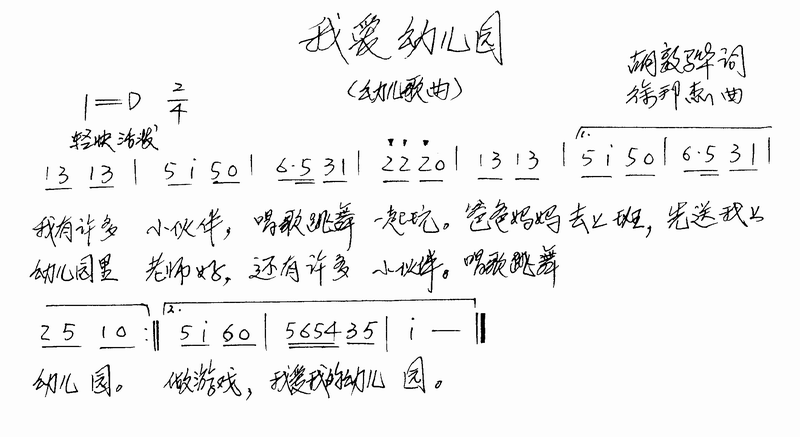 我爱幼儿园
(幼儿歌曲)
胡敦骅词
徐邦杰曲
1=D 2/4
轻快活泼
13 13 | 5i 50 | 6·5 31 | 22 20 | 13 13 | 1. 5i 50 | 6·5 31 |
我有许多 小伙伴，唱歌跳舞 一起玩。爸爸妈妈去上班，先送我上
幼儿园里 老师好，还有许多 小伙伴。唱歌跳舞
25 10 :‖ 2. 5i 60 | 5654 35 | i — ‖
幼儿 园。 做游戏，我爱我的幼儿 园。